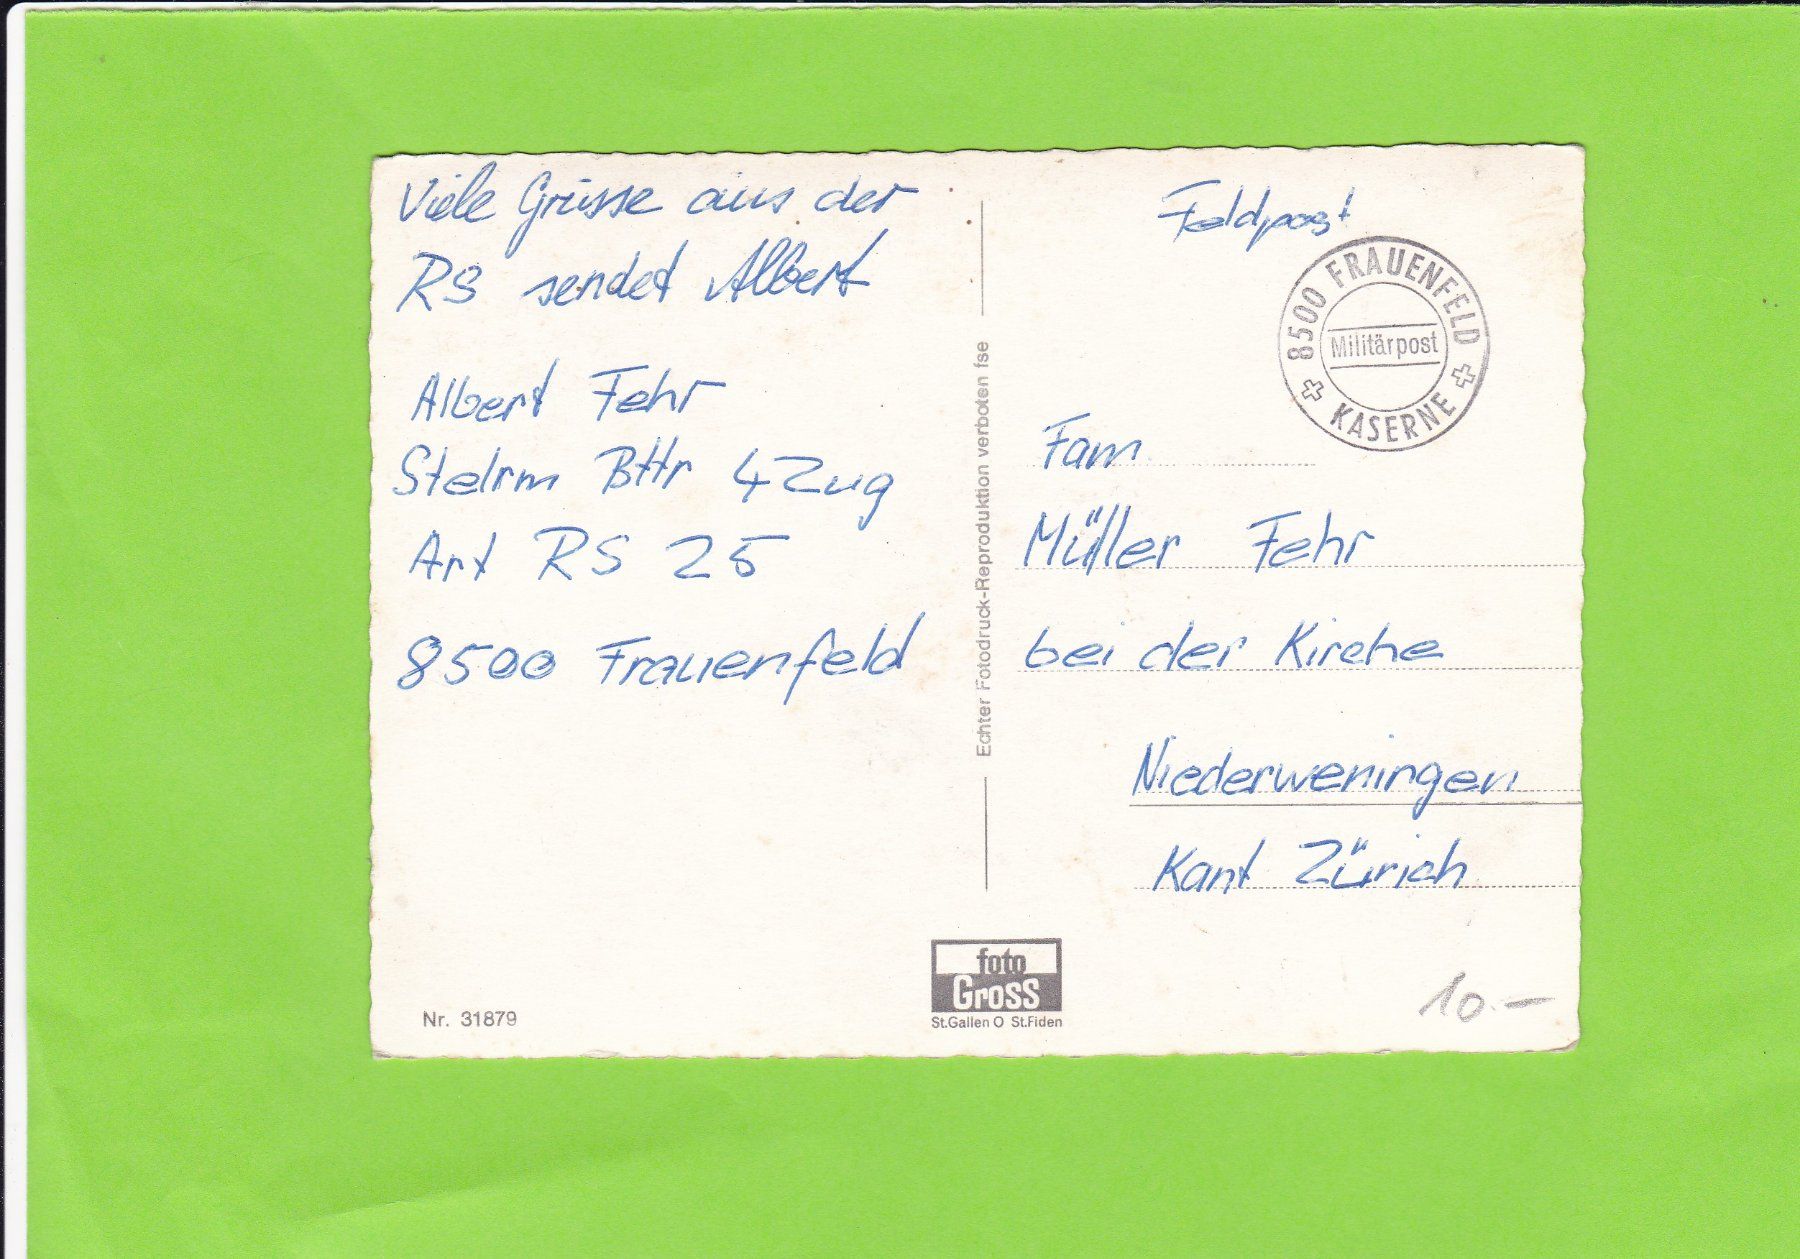 Viele Grüsse aus der
RS sendet Albert
Albert Fehr
Stelrm Bttr 4 Zug
Art RS 25
8500 Frauenfeld
Nr. 31879
Echter Fotodruck-Reproduktion verboten fse
foto
Gross
St.Gallen O St.Fiden
Feldpost
8500 FRAUENFELD
Militärpost
KASERNE
Fam
Müller Fehr
bei der Kirche
Niederweningen
Kant Zürich
10.-